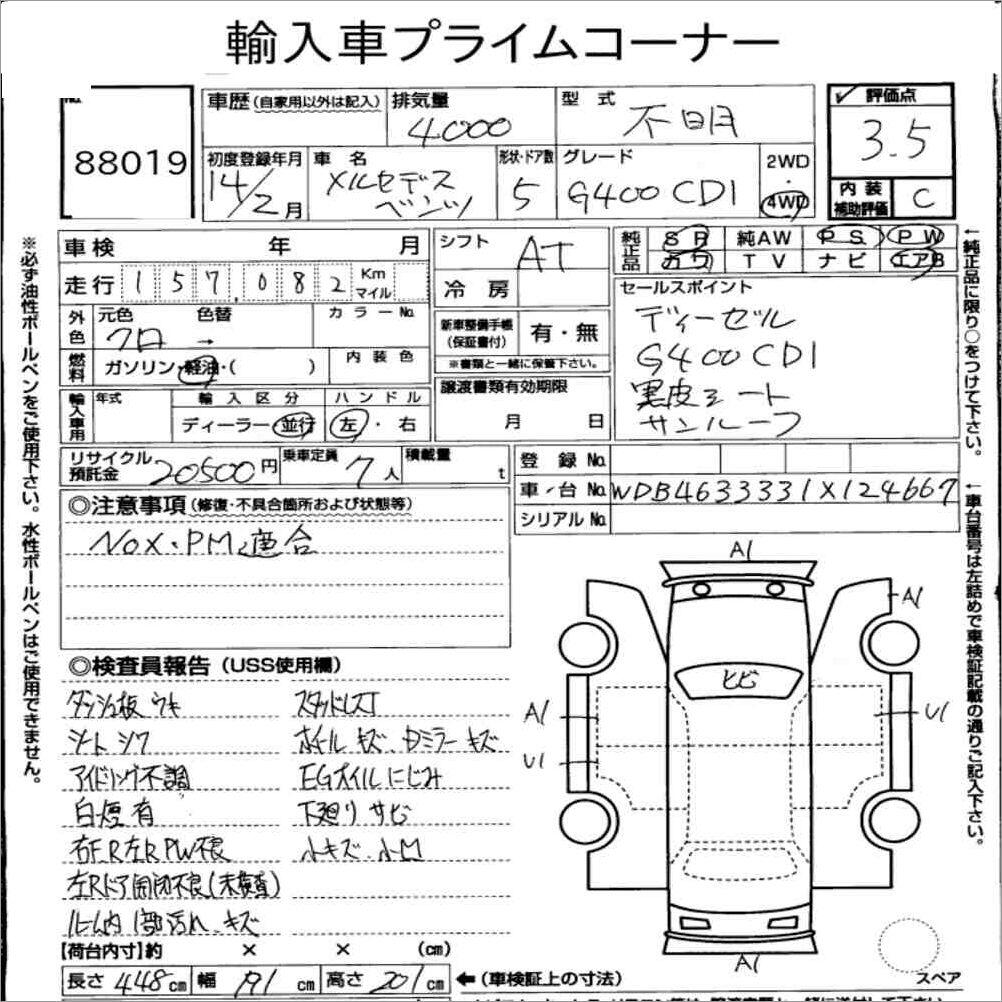 輸入車プライムコーナー
88019
車歴 (自家用以外は記入)
排気量 4000
型式 不明
評価点 3.5
内装補助評価 C
初度登録年月 14/2月
車名 メルセデスベンツ
形状・ドア数 5
グレード G400 CDI
2WD・4WD
車検 年 月
走行 157,082 Km マイル
シフト AT
冷房
純正品 SR 純AW PS PW
カワ TV ナビ エアB
外色 元色 クロ → 色替
カラーNo.
燃料 ガソリン・軽油・( )
内装色
新車整備手帳(保証書付) 有・無
※書類と一緒に保管下さい。
セールスポイント
ディーゼル
G400 CDI
黒皮シート
サンルーフ
輸入車用 年式
輸入区分 ディーラー・並行
ハンドル 左・右
譲渡書類有効期限
月 日
リサイクル預託金 20500円
乗車定員 7人
積載量 t
登録No.
車台No. WDB4633331X124667
シリアルNo.
◎注意事項 (修復・不具合箇所および状態等)
NOX・PM適合
◎検査員報告 (USS使用欄)
ダッシュ板 ウキ
シート シワ
アイドリング不調
白煙有
右F,R左R PW不良
左Rドア開閉不良(未検査)
ルーム内 1部汚れ、キズ
スタッドレスT
ホイールキズ、Dミラーキズ
EGオイルにじみ
下廻りサビ
小キズ、小凹
A1
A1
ヒビ
A1
U1
U1
A1
スペア
【荷台内寸】約 × × (cm)
長さ 448 cm 幅 191 cm 高さ 201 cm ←(車検証上の寸法)
※必ず油性ボールペンをご使用下さい。水性ボールペンはご使用できません。
←純正品に限り○をつけて下さい。
←車台番号は左詰めで車検証記載の通りご記入下さい。